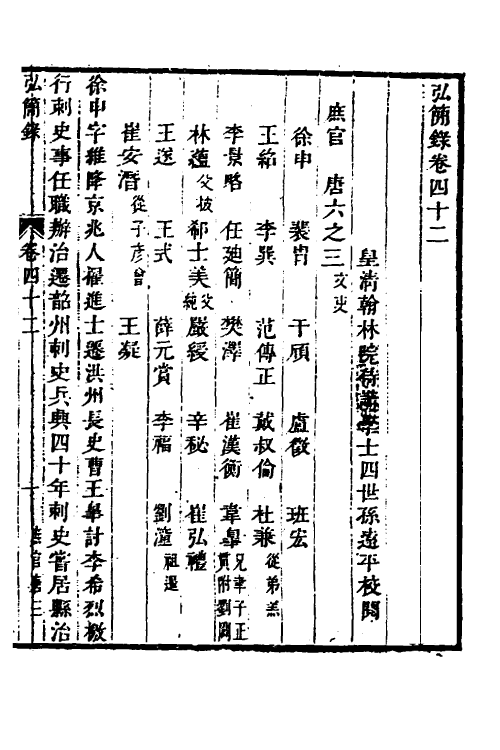 弘簡錄卷四十二
皇清翰林院侍讀學士四世孫遠平校閱
庶官 唐六之三文史
徐申 裴胄 于頎 盧徵 班宏
王紿 李巽 范傳正 戴叔倫 杜兼從弟羔
李景略 任廸簡 樊澤 崔漢衡 韋臯兄聿子正貫附劉闢
林蘊父披 郗士美父純 嚴綬 辛秘 崔弘禮
王遂 王式 薛元賞 李福 劉潼祖暹
崔安潛從子彥曾 王凝
徐申字維降京兆人擢進士遷洪州長史曹王臯討李希烈檄
行刺史事任職辦治遷韶州刺史兵興四十年刺史嘗居縣治
弘簡錄 卷四十二 一 庶官唐三